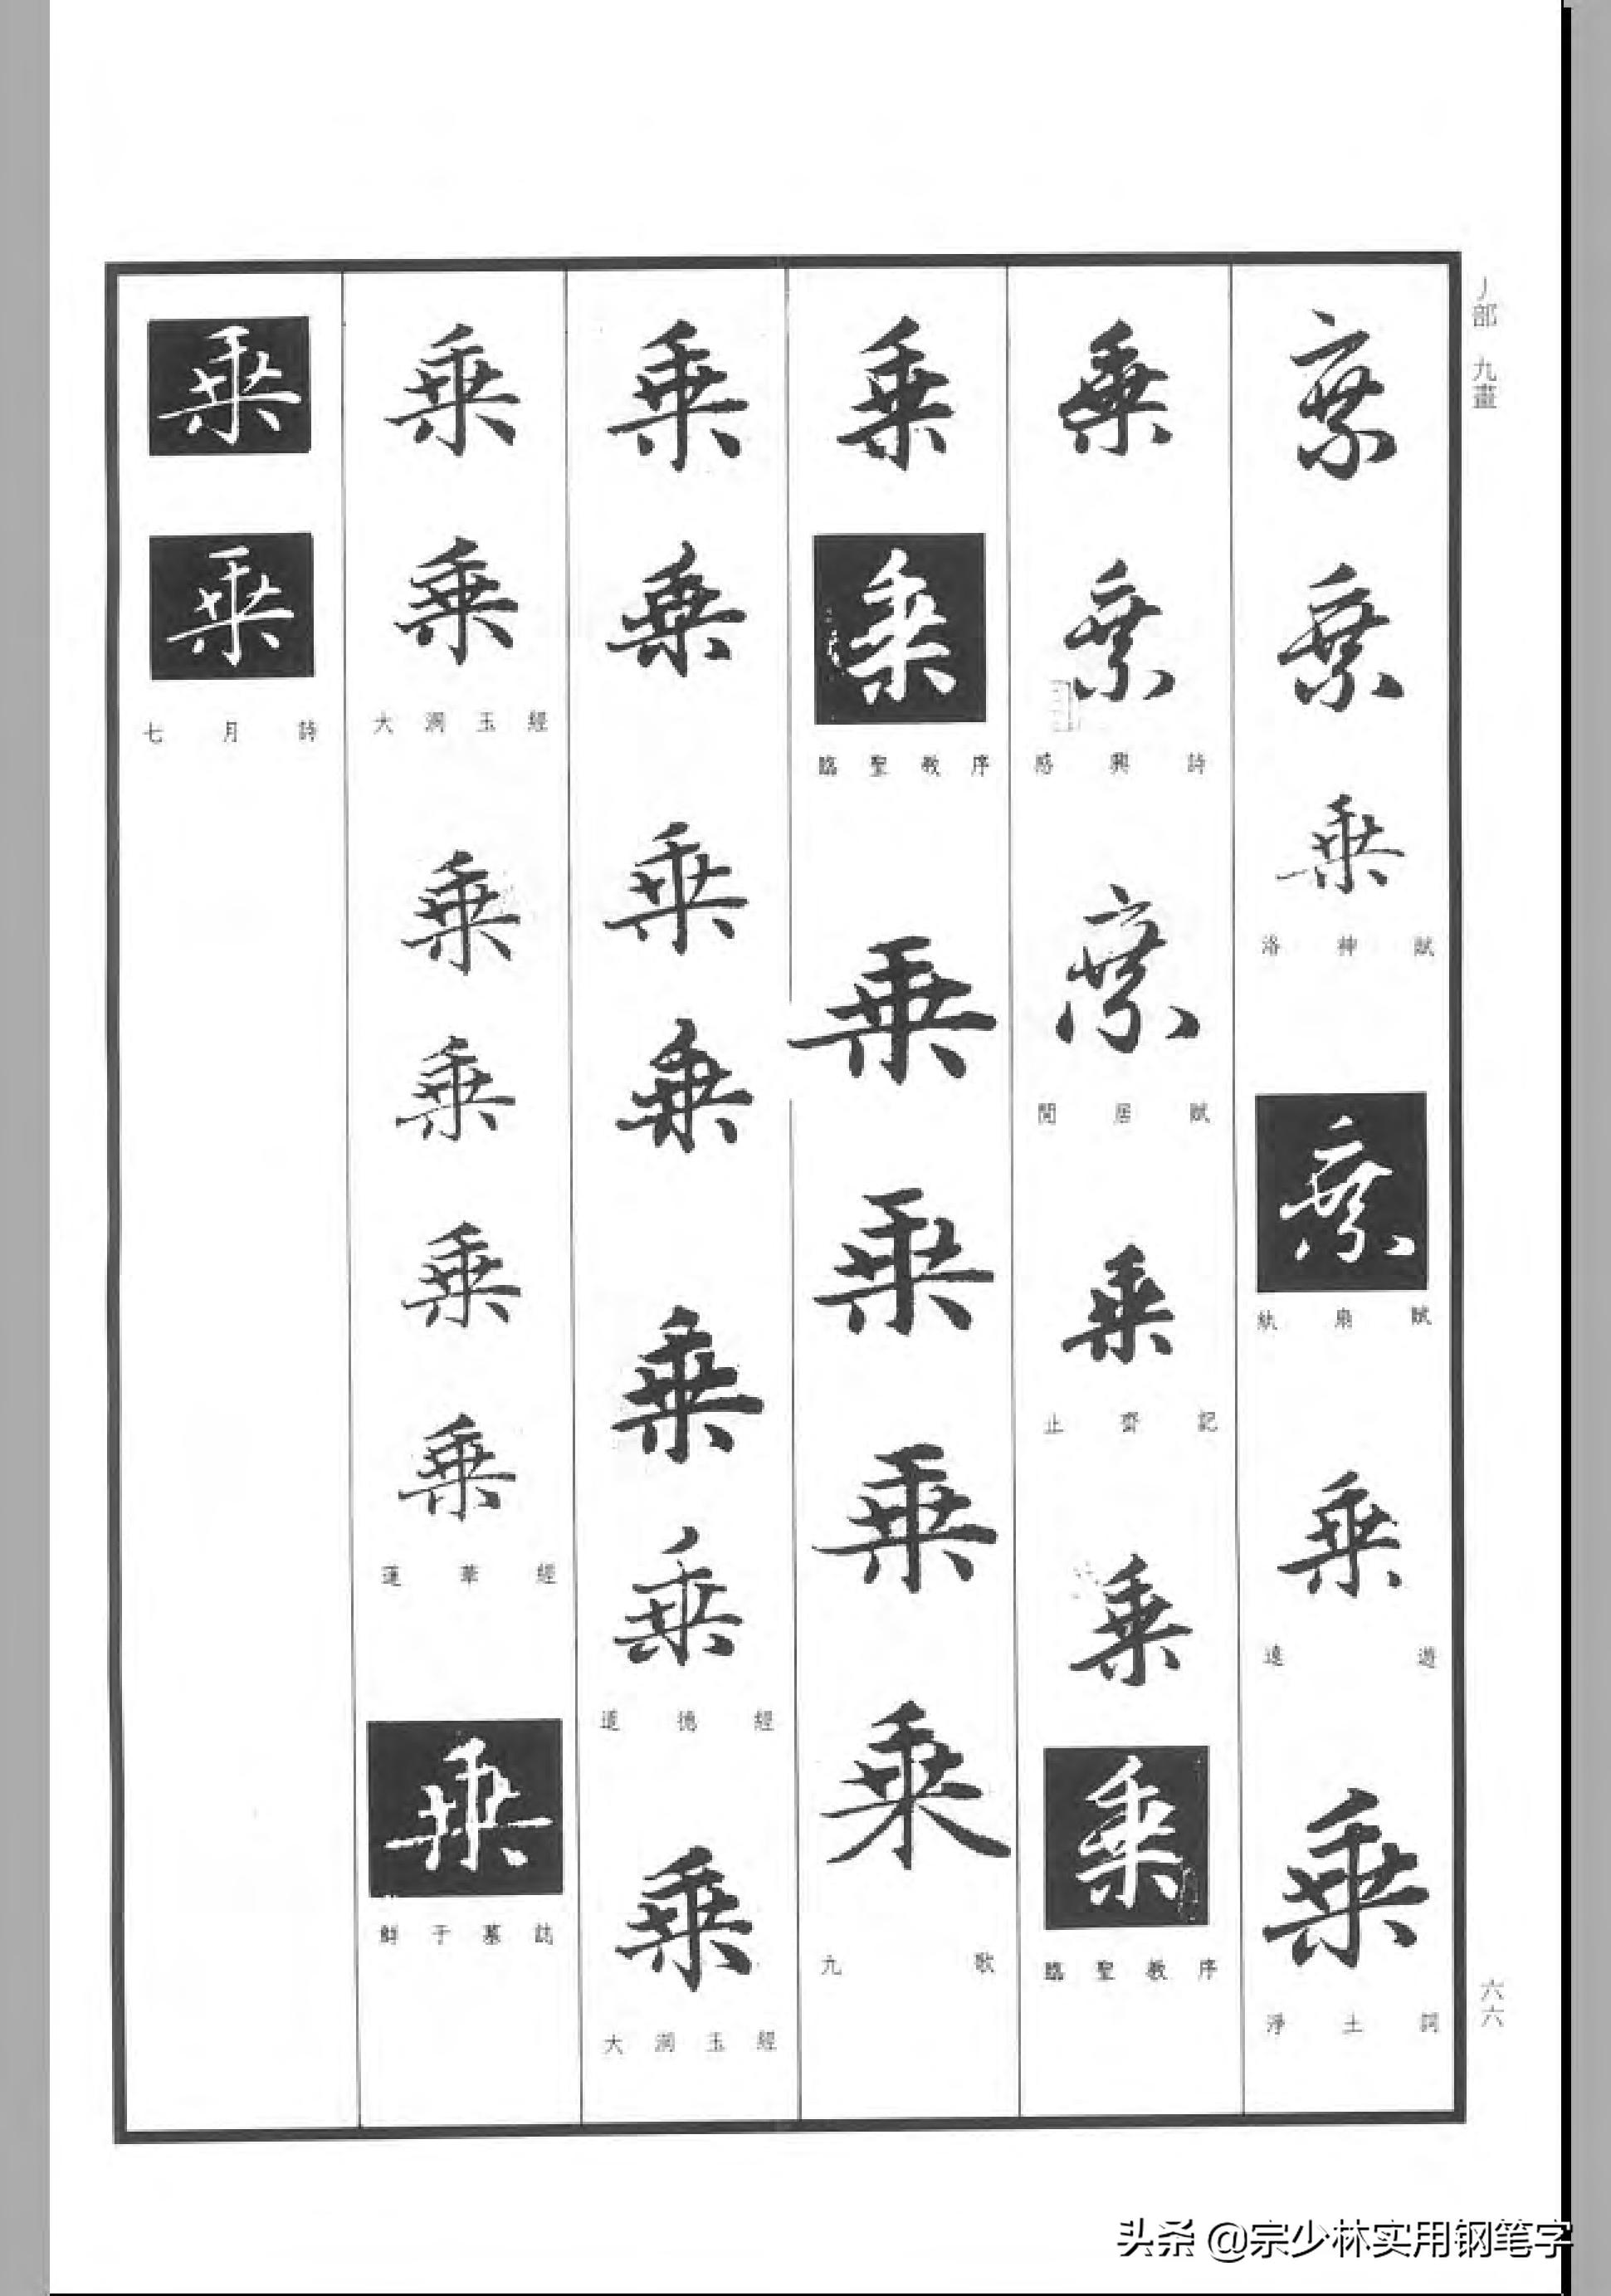 丿部 九畫
乘
乘
乘
洛神賦
乘
紈扇賦
乘
遠遊
乘
淨土詞
乘
乘
感興詩
乘
閒居賦
乘
止齋記
乘
乘
臨聖教序
乘
乘
臨聖教序
乘
乘
乘
乘
九歌
乘
乘
乘
乘
乘
乘
道德經
乘
大洞玉經
乘
乘
大洞玉經
乘
乘
乘
乘
蓮華經
乘
鮮于墓誌
乘
乘
七月詩
六六
头条 @宗少林实用钢笔字